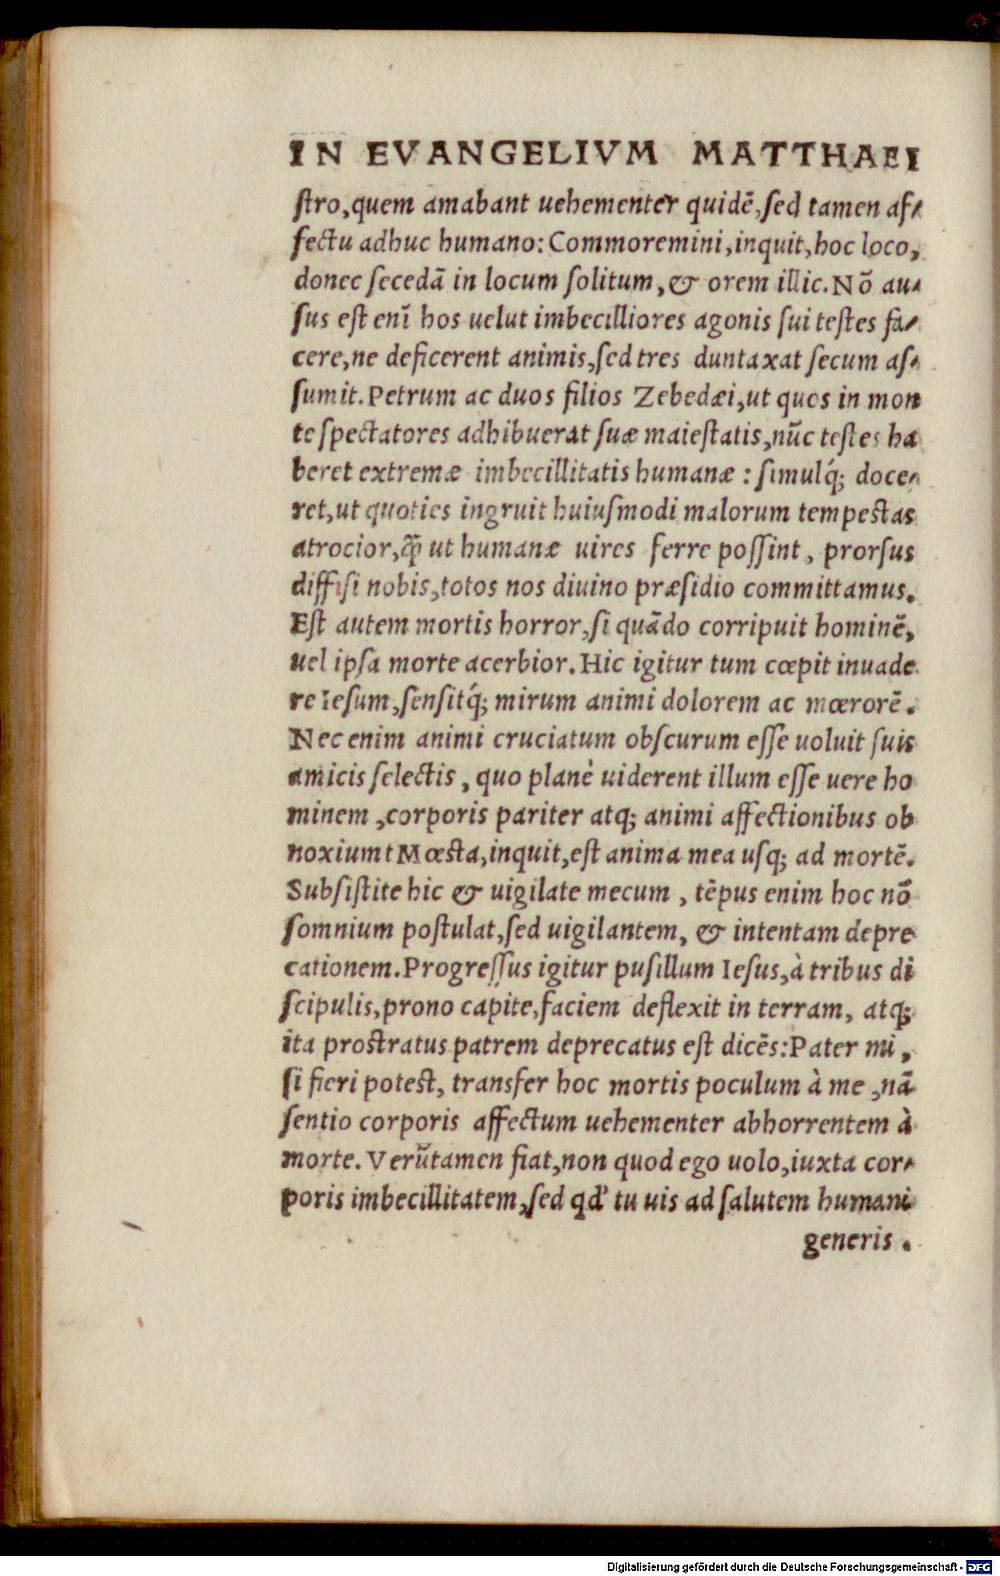 IN EVANGELIVM MATTHAEI
ſtro,quem amabant uehementer quidē,ſed tamen af⸗
fectu adhuc humano: Commoremini,inquit,hoc loco,
donec ſecedā in locum ſolitum,& orem illic. Nō au⸗
ſus eſt enī hos uelut imbecilliores agonis ſui teſtes fa⸗
cere,ne deficerent animis,ſed tres duntaxat ſecum aſ⸗
ſumit. Petrum ac duos filios Zebedæi,ut quos in mon
te ſpectatores adhibuerat ſuæ maieſtatis,nūc teſtes ha
beret extremæ imbecillitatis humanæ : ſimulq́; doce⸗
ret,ut quoties ingruit huiuſmodi malorum tempeſtas
atrocior,q̃ꝫ ut humanæ uires ferre poſſint, prorſus
diffiſi nobis,totos nos diuino præſidio committamus.
Eſt autem mortis horror,ſi quādo corripuit hominē,
uel ipſa morte acerbior. Hic igitur tum cœpit inuade
re Ieſum,ſenſitq́; mirum animi dolorem ac mœrorē.
Nec enim animi cruciatum obſcurum eſſe uoluit ſuis
amicis ſelectis, quo planè uiderent illum eſſe uere ho
minem ,corporis pariter atq; animi affectionibus ob
noxium t Mœſta,inquit,eſt anima mea uſq; ad mortē.
Subſiſtite hic & uigilate mecum , tēpus enim hoc nō
ſomnium poſtulat,ſed uigilantem, & intentam depre
cationem. Progreſſus igitur puſillum Ieſus,à tribus di
ſcipulis,prono capite,faciem deflexit in terram, atq;
ita proſtratus patrem deprecatus eſt dicēs: Pater mi ,
ſi fieri poteſt, transfer hoc mortis poculum à me ,nā
ſentio corporis affectum uehementer abhorrentem à
morte. Verūtamen fiat,non quod ego uolo,iuxta cor⸗
poris imbecillitatem,ſed qd' tu uis ad ſalutem humani
generis .
Digitalisierung gefördert durch die Deutsche Forschungsgemeinschaft - DFG